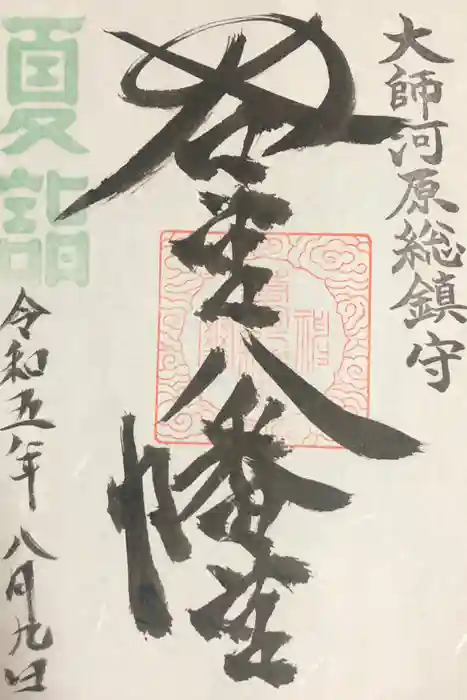 大師河原総鎮守
若宮八幡宮
夏詣
令和五年八月九日